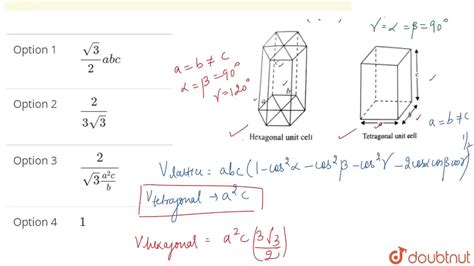 Option 1
√3/2 abc
Option 2
2/3√3
Option 3
2/(√3 a²c/b)
Option 4
1
a = b ≠ c
α = β = 90°
γ = 120°
a
b
Hexagonal unit cell
γ = α = β = 90°
c
Tetragonal unit cell
a = b ≠ c
V lattice = abc (1 - cos²α - cos²β - cos²γ - 2cosα cosβ cosγ)^1/2
V tetragonal → a²c
V hexagonal = a²c (3√3/2)
doubtnut